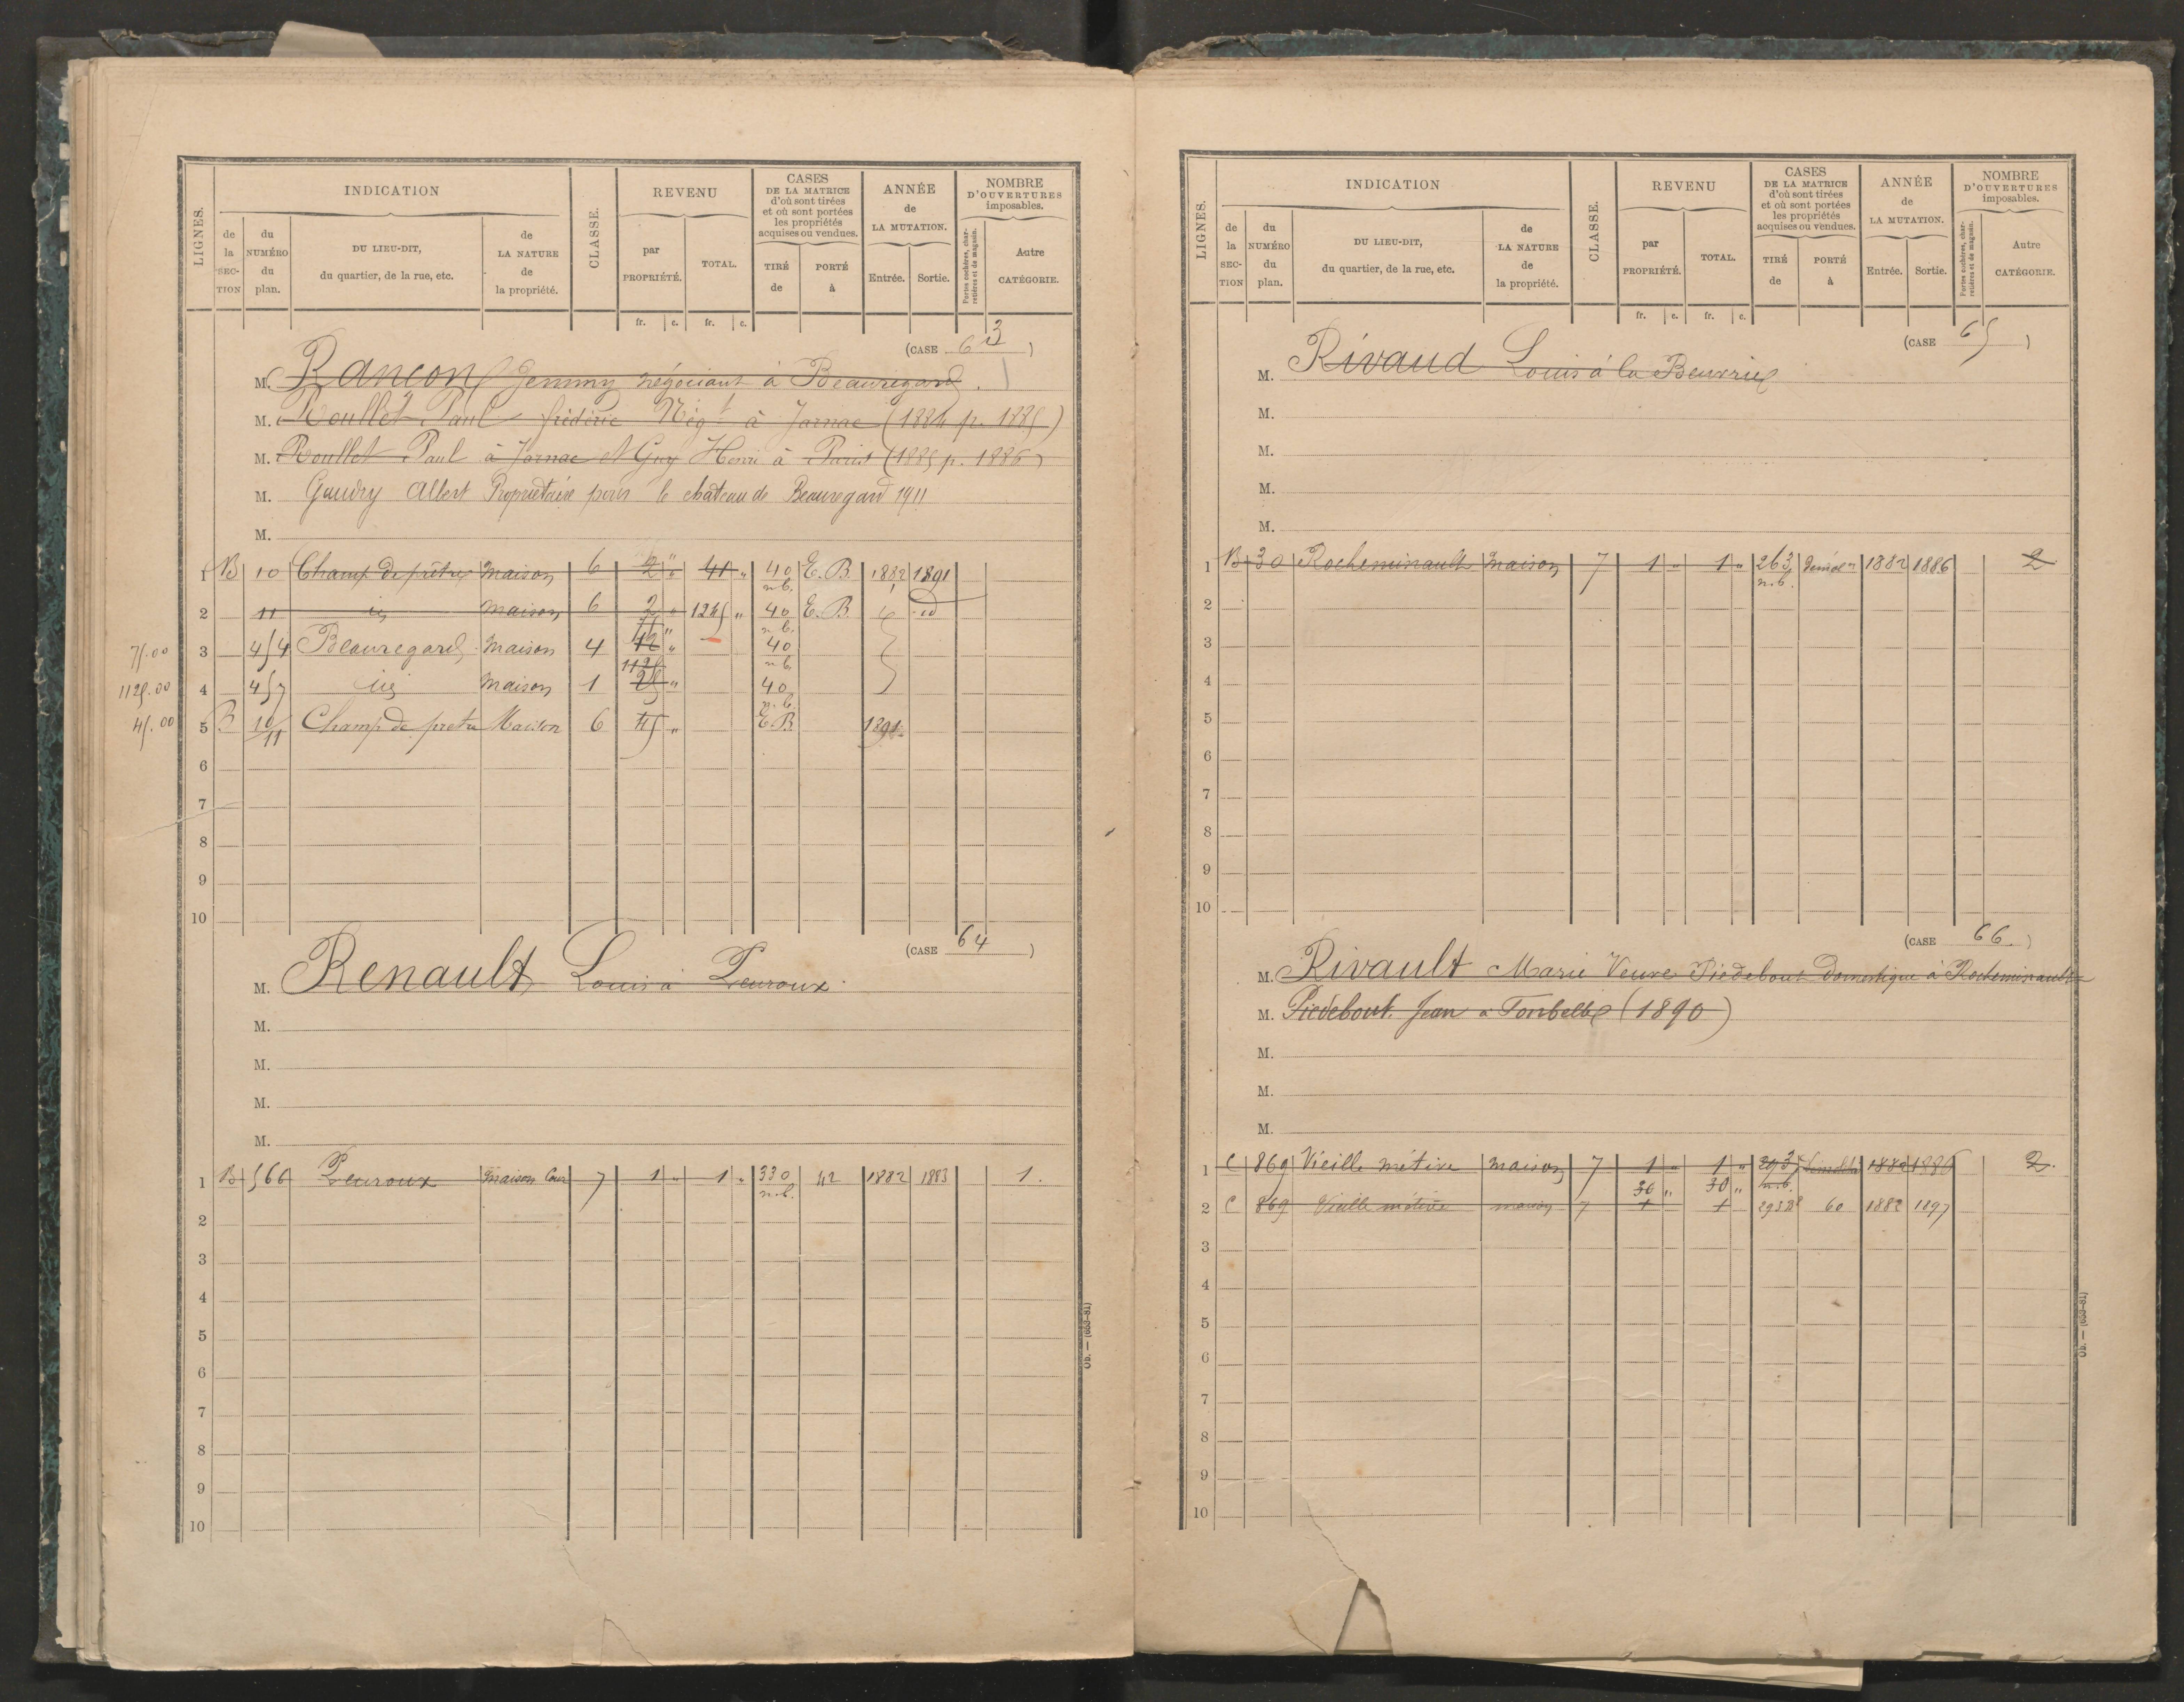 LIGNES.
INDICATION
de la SECTION
du NUMÉRO du plan.
DU LIEU-DIT, du quartier, de la rue, etc.
de LA NATURE de la propriété.
CLASSE.
REVENU
par PROPRIÉTÉ.
TOTAL.
fr. c. fr. c.
CASES DE LA MATRICE d'où sont tirées et où sont portées les propriétés acquises ou vendues.
TIRÉ de
PORTÉ à
ANNÉE de LA MUTATION.
Entrée. Sortie.
NOMBRE D'OUVERTURES imposables.
Portes cochères, charretières et de magasin.
Autre CATÉGORIE.
(CASE 63)
M. Rancon Jemmy négociant à Beauregard.
M. Roullet Paul frédéric Négt à Jarnac (1884 p. 1885)
M. Roullet Paul à Jarnac et Guy Henri à Paris (1885 p. 1886)
M. Gaudry Albert Propriétaire pour le chateau de Beauregard 1911
M.
1 B 10 Champ de prêtre maison 6 2 " 41 " 40 n.b. E.B. 1882 1891
2 11 id maison 6 2 " 1245 " 40 n.b. E.B. id
75.00 3 454 Beauregard maison 4 75 12 " 40 n.b.
1125.00 4 457 id maison 1 1125 25 " 40 n.b.
45.00 5 B 10/11 Champ de pretre Maison 6 45 " E.B. 1891
6
7
8
9
10
(CASE 64)
M. Renault Louis à Leuroux.
M.
M.
M.
M.
1 B 566 Leuroux maison Cour 7 1 " 1 " 330 n.b. 42 1882 1883 1.
2
3
4
5
6
7
8
9
10
Ob. — (653—81)
LIGNES.
INDICATION
de la SECTION
du NUMÉRO du plan.
DU LIEU-DIT, du quartier, de la rue, etc.
de LA NATURE de la propriété.
CLASSE.
REVENU
par PROPRIÉTÉ.
TOTAL.
fr. c. fr. c.
CASES DE LA MATRICE d'où sont tirées et où sont portées les propriétés acquises ou vendues.
TIRÉ de
PORTÉ à
ANNÉE de LA MUTATION.
Entrée. Sortie.
NOMBRE D'OUVERTURES imposables.
Portes cochères, charretières et de magasin.
Autre CATÉGORIE.
(CASE 65)
M. Rivaud Louis à la Beurrie
M.
M.
M.
M.
1 B 30 Rocheminault maison 7 1 " 1 " 263 n.b. démoln 1882 1886 2
2
3
4
5
6
7
8
9
10
(CASE 66.)
M. Rivault Marie Veuve Piedebout domestique à Rocheminault
M. Piedebout Jean à Fonbelle (1890)
M.
M.
M.
1 C 869 Vieille métive maison 7 1 " 1 " 293 n.b. 1882 1886 2.
2 C 869 Vieille métive maison 7 30 " 1 30 " 1 60 1882 1897
3
4
5
6
7
8
9
10
Ob. — (653—81)